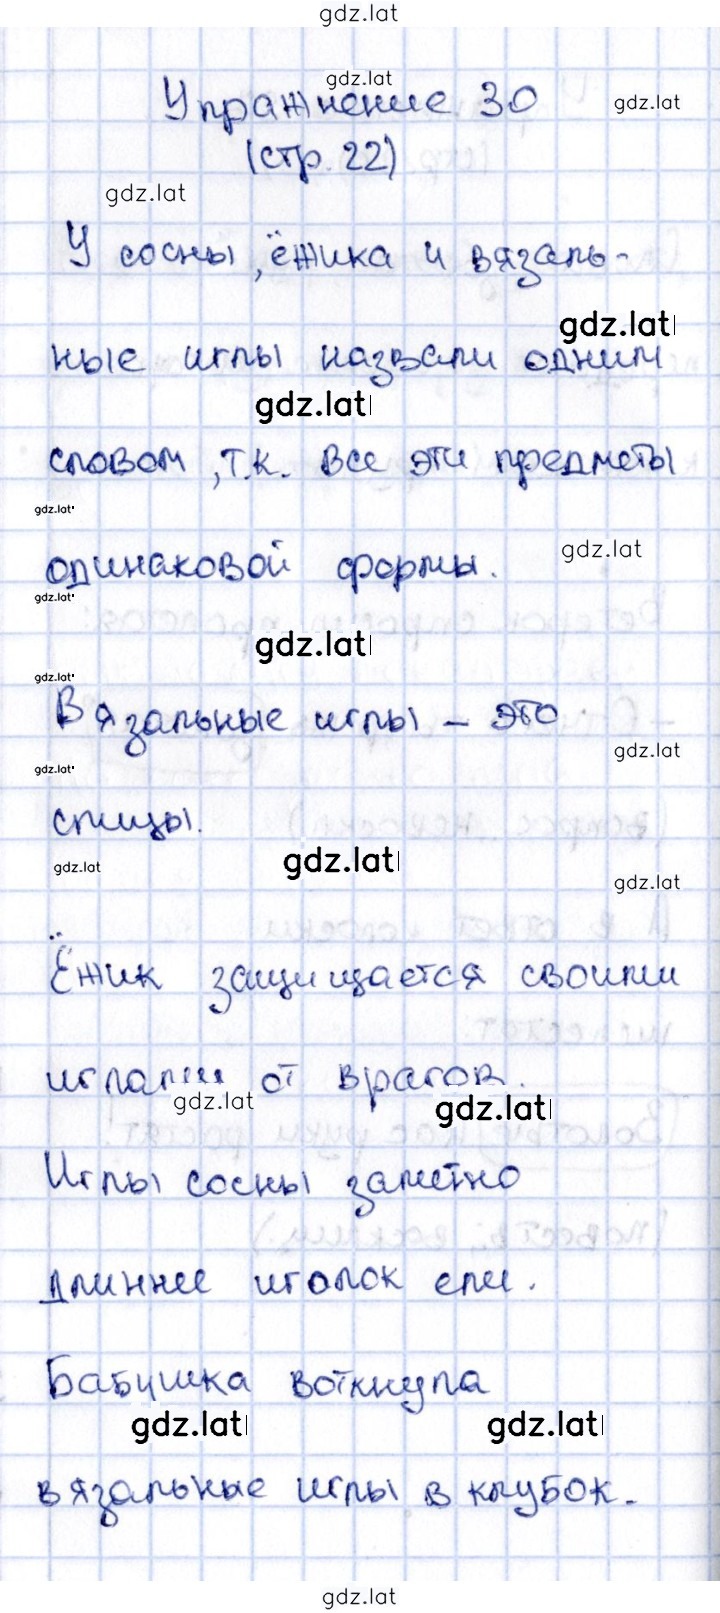 gdz.lat
gdz.lat
Упражнение 30
gdz.lat
(стр. 22)
gdz.lat
У сосны, ёжика и вязаль-
gdz.lat
ные иглы назвали одним
gdz.lat
словом, т.к. все эти предметы
gdz.lat
одинаковой формы.
gdz.lat
gdz.lat
gdz.lat
gdz.lat
Вязальные иглы – это
gdz.lat
gdz.lat
спицы.
gdz.lat
gdz.lat
gdz.lat
Ёжик защищается своими
иглами от врагов.
gdz.lat
gdz.lat
Иглы сосны заметно
длиннее иголок ели.
Бабушка воткнула
gdz.lat
gdz.lat
вязальные иглы в клубок.
gdz.lat